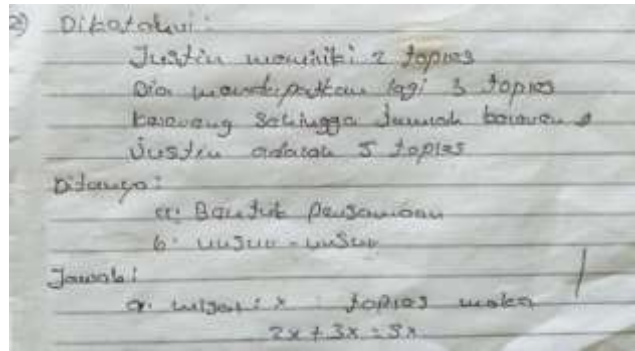 2) Diketahui:
Justin memiliki 2 toples
Dia mendapatkan lagi 3 toples
kelereng sehingga Jumlah kelereng
Justin adalah 5 toples
Ditanya:
a. Bentuk Persamaan
b. unsur-unsur
Jawab:
a. misal: x : toples maka
2x + 3x = 5x